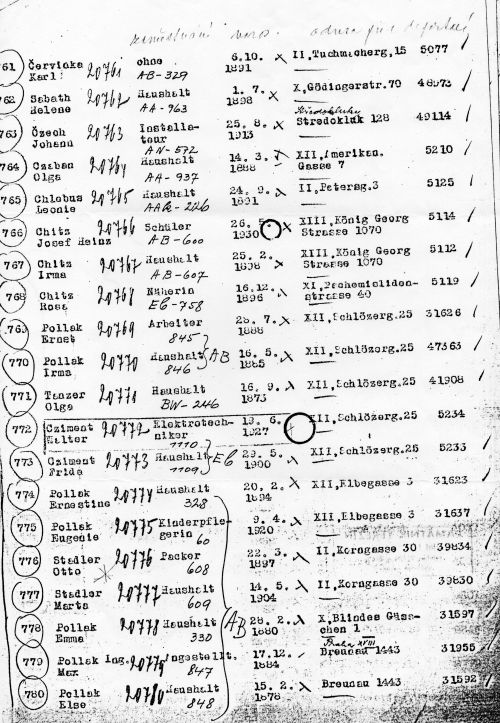 zaměstnání naro. adresa před deportací
761 Červinka Karl 20761 ohne AB-329 6.10. 1891 II,Tuchmacherg,15 5077
762 Sabath Helene 20762 Haushalt AA-963 1. 7. 1898 X,Gödingerstr.70 48973
763 Čzech Johann 20763 Installateur AN-572 25. 8. 1913 Středokluky Stredokluk 128 49114
764 Czaban Olga 20764 Haushalt AA-937 14. 3. 1888 XII,Amerikan. Gasse 7 5210
765 Chlobus Leonie 20765 Haushalt 24. 9. 1891 II,Petersg.3 5125
766 Chitz Josef Heinz 20766 Schüler AB-600 26. 5. 1930 XIII,König Georg Strasse 1070 5114
767 Chitz Irma 20767 Haushalt AB-607 25. 2. XIII,König Georg Strasse 1070 5112
768 Chitz Rosa 20768 Näherin EG-758 16.12. 1896 strasse 40 5119
769 Pollak Ernst 20769 Arbeiter 845 28. 7. 1888 XII,Schlözerg.25 31626
770 Pollak Irma 20770 Haushalt 846 AB 16. 5. 1885 XII,Schlözerg.25 47363
771 Tanzer Olga 20771 Haushalt BW-246 16. 9. 1873 XII,Schlözerg.25 41908
772 Cziment Walter 20772 Elektrotechniker 1110 19. 6. 1927 XII,Schlözerg.25 5234
773 Cziment Frida 20773 Haushalt 1109 EG 29. 5. 1900 XII,Schlözerg.25 5233
774 Pollak Ernestine 20774 Haushalt 328 20. 2. 1894 XII,Elbegasse 3 31623
775 Pollak Eugenie 20775 Kinderpflegerin 60 9. 4. 1920 XII,Elbegasse 3 31637
776 Stadler Otto 20776 Packer 608 22. 3. 1897 II,Korngasse 30 39834
777 Stadler Marta 20777 Haushalt 609 14. 5. 1904 II,Korngasse 30 39830
778 Pollak Emma 20778 Haushalt 330 AB 28. 2. 1880 X,Blindes Gässchen 1 31597
779 Pollak Ing. Max 20779 Angestellt. 847 17.12. 1884 Praha XVIII Breunau 1443 31955
780 Pollak Else 20780 Haushalt 848 15. 2. 1878 Breunau 1443 31592